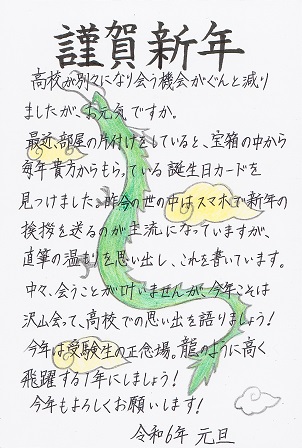 謹賀新年
高校が別々になり会う機会がぐんと減り
ましたが、お元気ですか。
最近、部屋の片付けをしていると、宝箱の中から
毎年貴方からもらっている誕生日カードを
見つけました。昨今の世の中はスマホで新年の
挨拶を送るのが主流になっていますが、
直筆の温もりを思い出し、これを書いています。
中々、会うことが叶いませんが、今年こそは
沢山会って、高校での思い出を語りましょう!
今年は受験生の正念場。龍のように高く
飛躍する1年にしましょう!
今年もよろしくお願いします!
令和6年 元旦